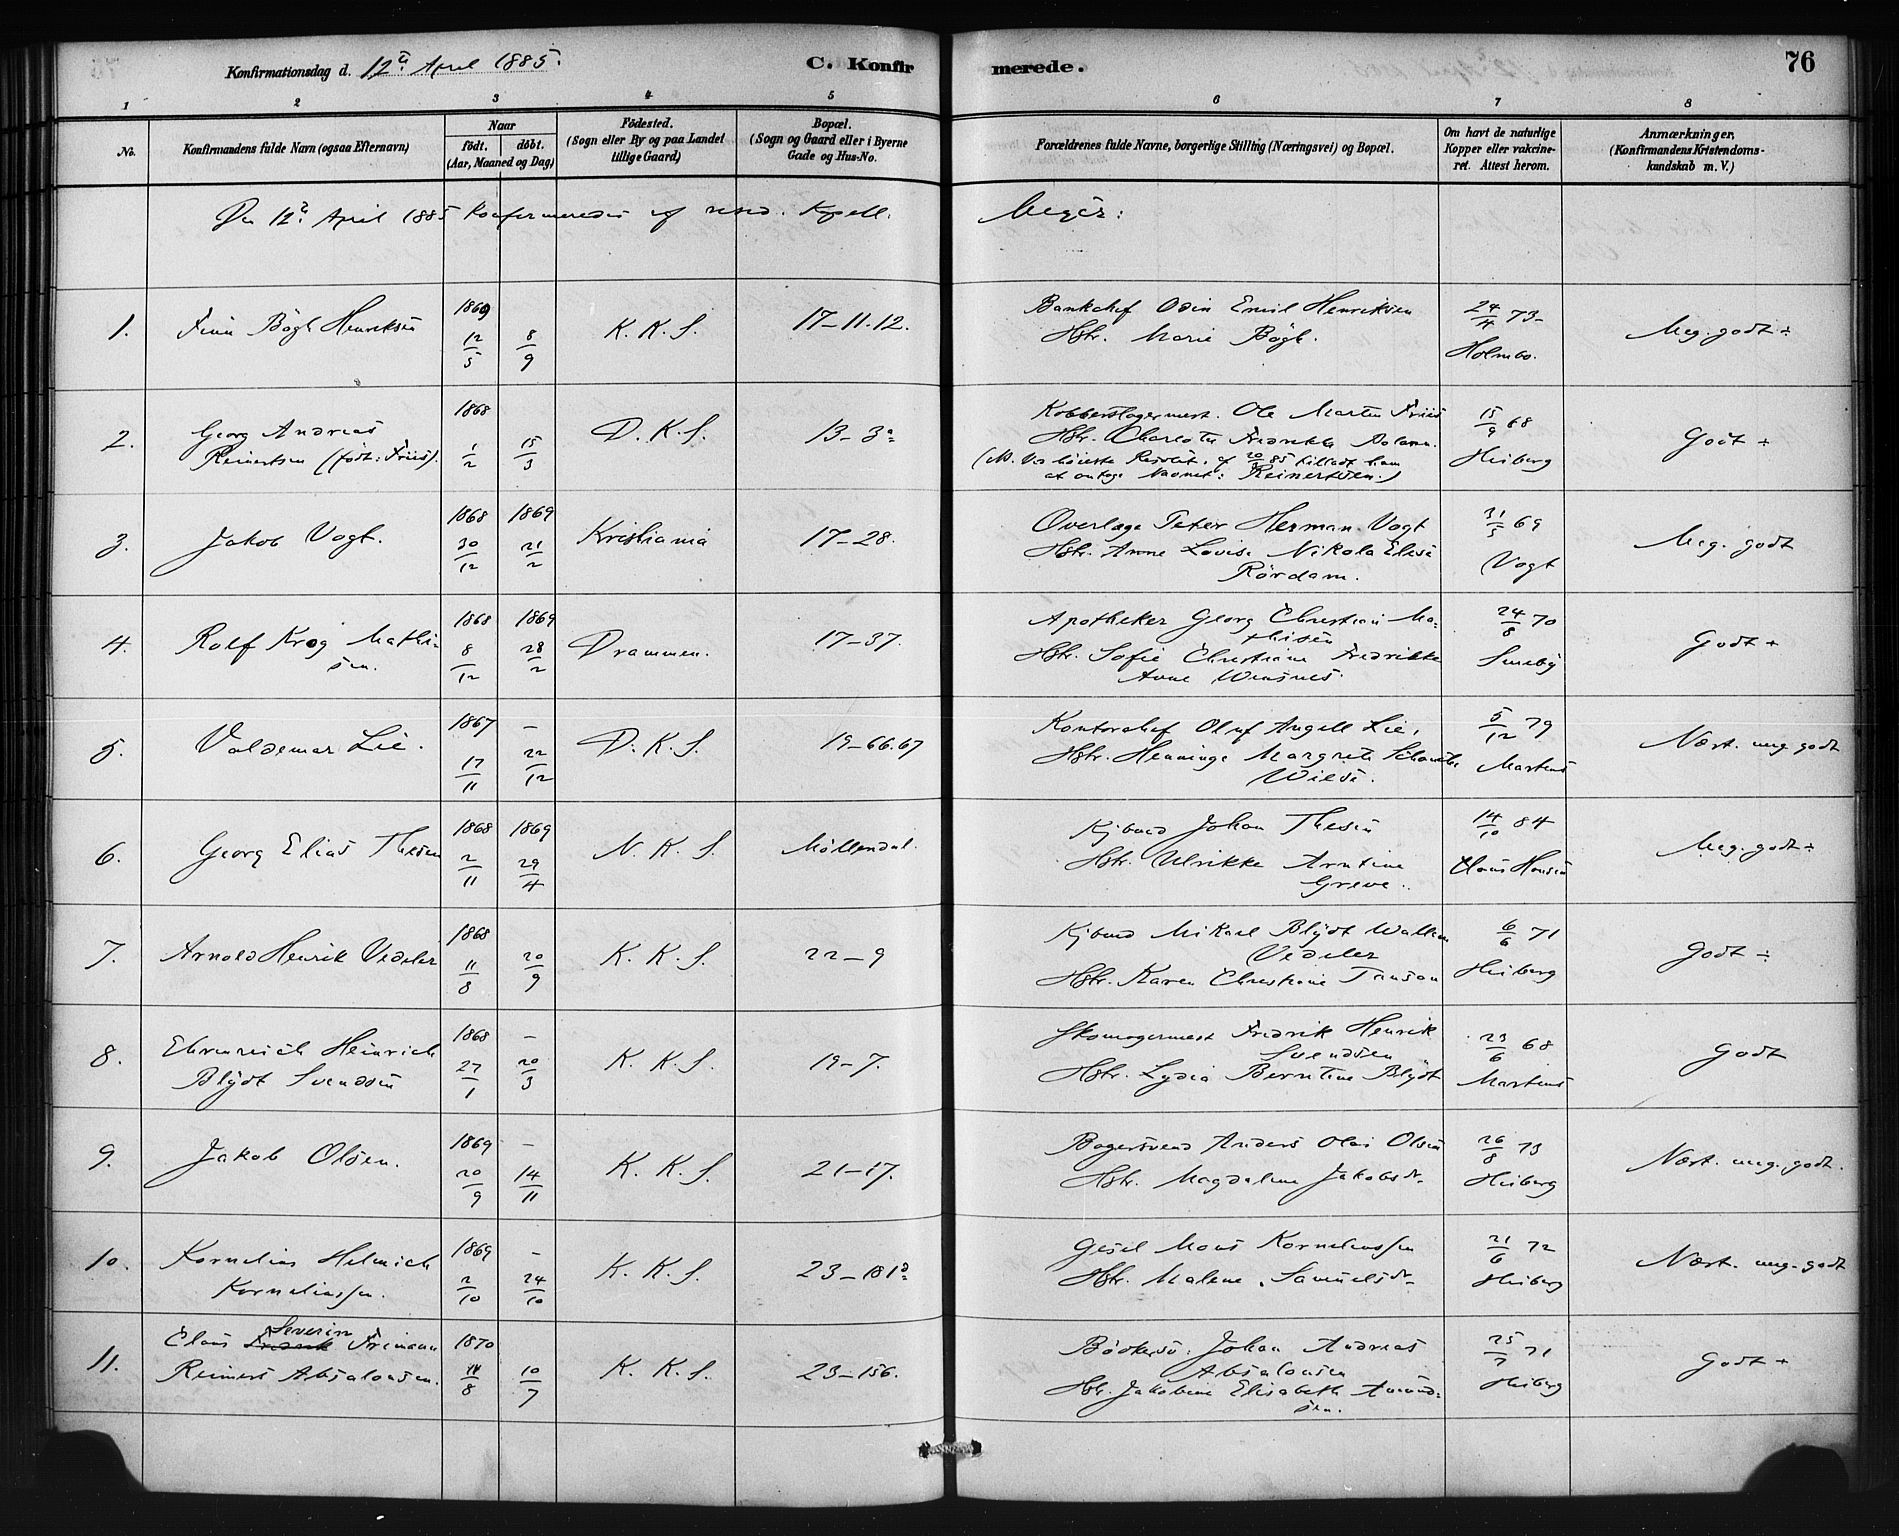 Konfirmationsdag d. 12te April 1885.
C. Konfirmerede.
76
1 2 3 4 5 6 7 8
No.
Konfirmandens fulde Navn (ogsaa Efternavn)
Naar
födt. döbt.
(Aar, Maaned og Dag)
Födested.
(Sogn eller By og paa Landet
tillige Gaard)
Bopæl.
(Sogn og Gaard eller i Byerne
Gade og Hus-No.
Forældrenes fulde Navne, borgerlige Stilling (Næringsvei) og Bopæl.
Om havt de naturlige
Kopper eller vakcine-
ret. Attest herom.
Anmærkninger,
(Konfirmandens Kristendoms-
kundskab m. V.)
Den 12te April 1885 konfirmeredes af resid. Kapell. Meyer:
1. Finn Bøgh Henriksen 1869 12/5 8/9 K. K. S. 17-11.12.
Bankchef Odin Emil Henriksen
Hstr. Marie Bøgh.
24/4 73- Holmbo.
Meg. godt ÷
2. Georg Andreas
Reinertsen (født: Friis).
1868 1/2 15/3 D. K. S. 13-3a
Kobberslagermest. Ole Martin Friis
Hstr. Charlotte Fredrikke
(NB. Ved høieste Resolut. af 20/ 85 tilladt ham
at antage Navnet: Reinertsen.)
15/9 68 Heiberg
Godt +
3. Jakob Vogt. 1868 30/12 1869 21/2 Kristiania 17-28.
Overlæge Peter Herman Vogt
Hstr. Anne Lovise Nikola Elise
Rördam.
31/5 69 Vogt
Meg. godt
4. Rolf Krog Mathi-
sen.
1868 8/12 1869 28/2 Drammen. 17-37.
Apotheker Georg Christian Ma-
thisen
Hstr. Sofie Christiane Fredrikke
Anne Wensnes.
24/8 70 Smeby
Godt +
5. Valdemar Lie. 1867 17/11 – 22/12 D. K. S. 19-66.67
Kontorchef Oluf Angell Lie,
Hstr. Henninge Margrete
Wiese.
5/12 79 Martens
Næst. meg. godt
6. Georg Elias Thesen 1868 2/11 1869 29/4 N. K. S. Møllendal.
Kjbmd Johan Thesen
Hstr. Ulrikke Arntine
Greve.
14/10 84 Claus Hansen
Meg. godt ÷
7. Arnold Henrik Vedeler 1868 11/8 20/9 K. K. S. 22-9
Kjbmd Mikael Blÿdt
Vedeler
Hstr. Karen Christine
6/6 71 Heiberg
Godt ÷
8. Ehrenreich Heinrich
Blÿdt Svendsen
1868 27/1 – 20/3 K. K. S. 19-7.
Skomagermest Fredrik Henrik
Svendsen
Hstr. Lydia Berntine Blÿdt
23/6 68 Martens
Godt
9. Jakob Olsen. 1869 20/9 – 14/11 K. K. S. 21-17.
Bagersvend Anders Olai Olsen
Hstr. Magdalene Jakobsdr.
26/8 73 Heiberg
Næst. meg. godt.
10. Kornelius Helmich
Korneliussen.
1869 2/10 – 24/10 K. K. S. 23-181a
Gesel Mons Korneliussen
Hstr. Malene Samuelsdr.
21/6 72 Heiberg
Næst. meg. godt
11. Claus Fredrik Severin Frimann
Reimers Absalonsen.
1870 11/8 10/7 K. K. S. 23-156.
Bödkersv. Johan Andreas
Absalonsen
Hstr. Jakobine Elisabeth Amund-
sen.
25/7 71 Heiberg
Godt +